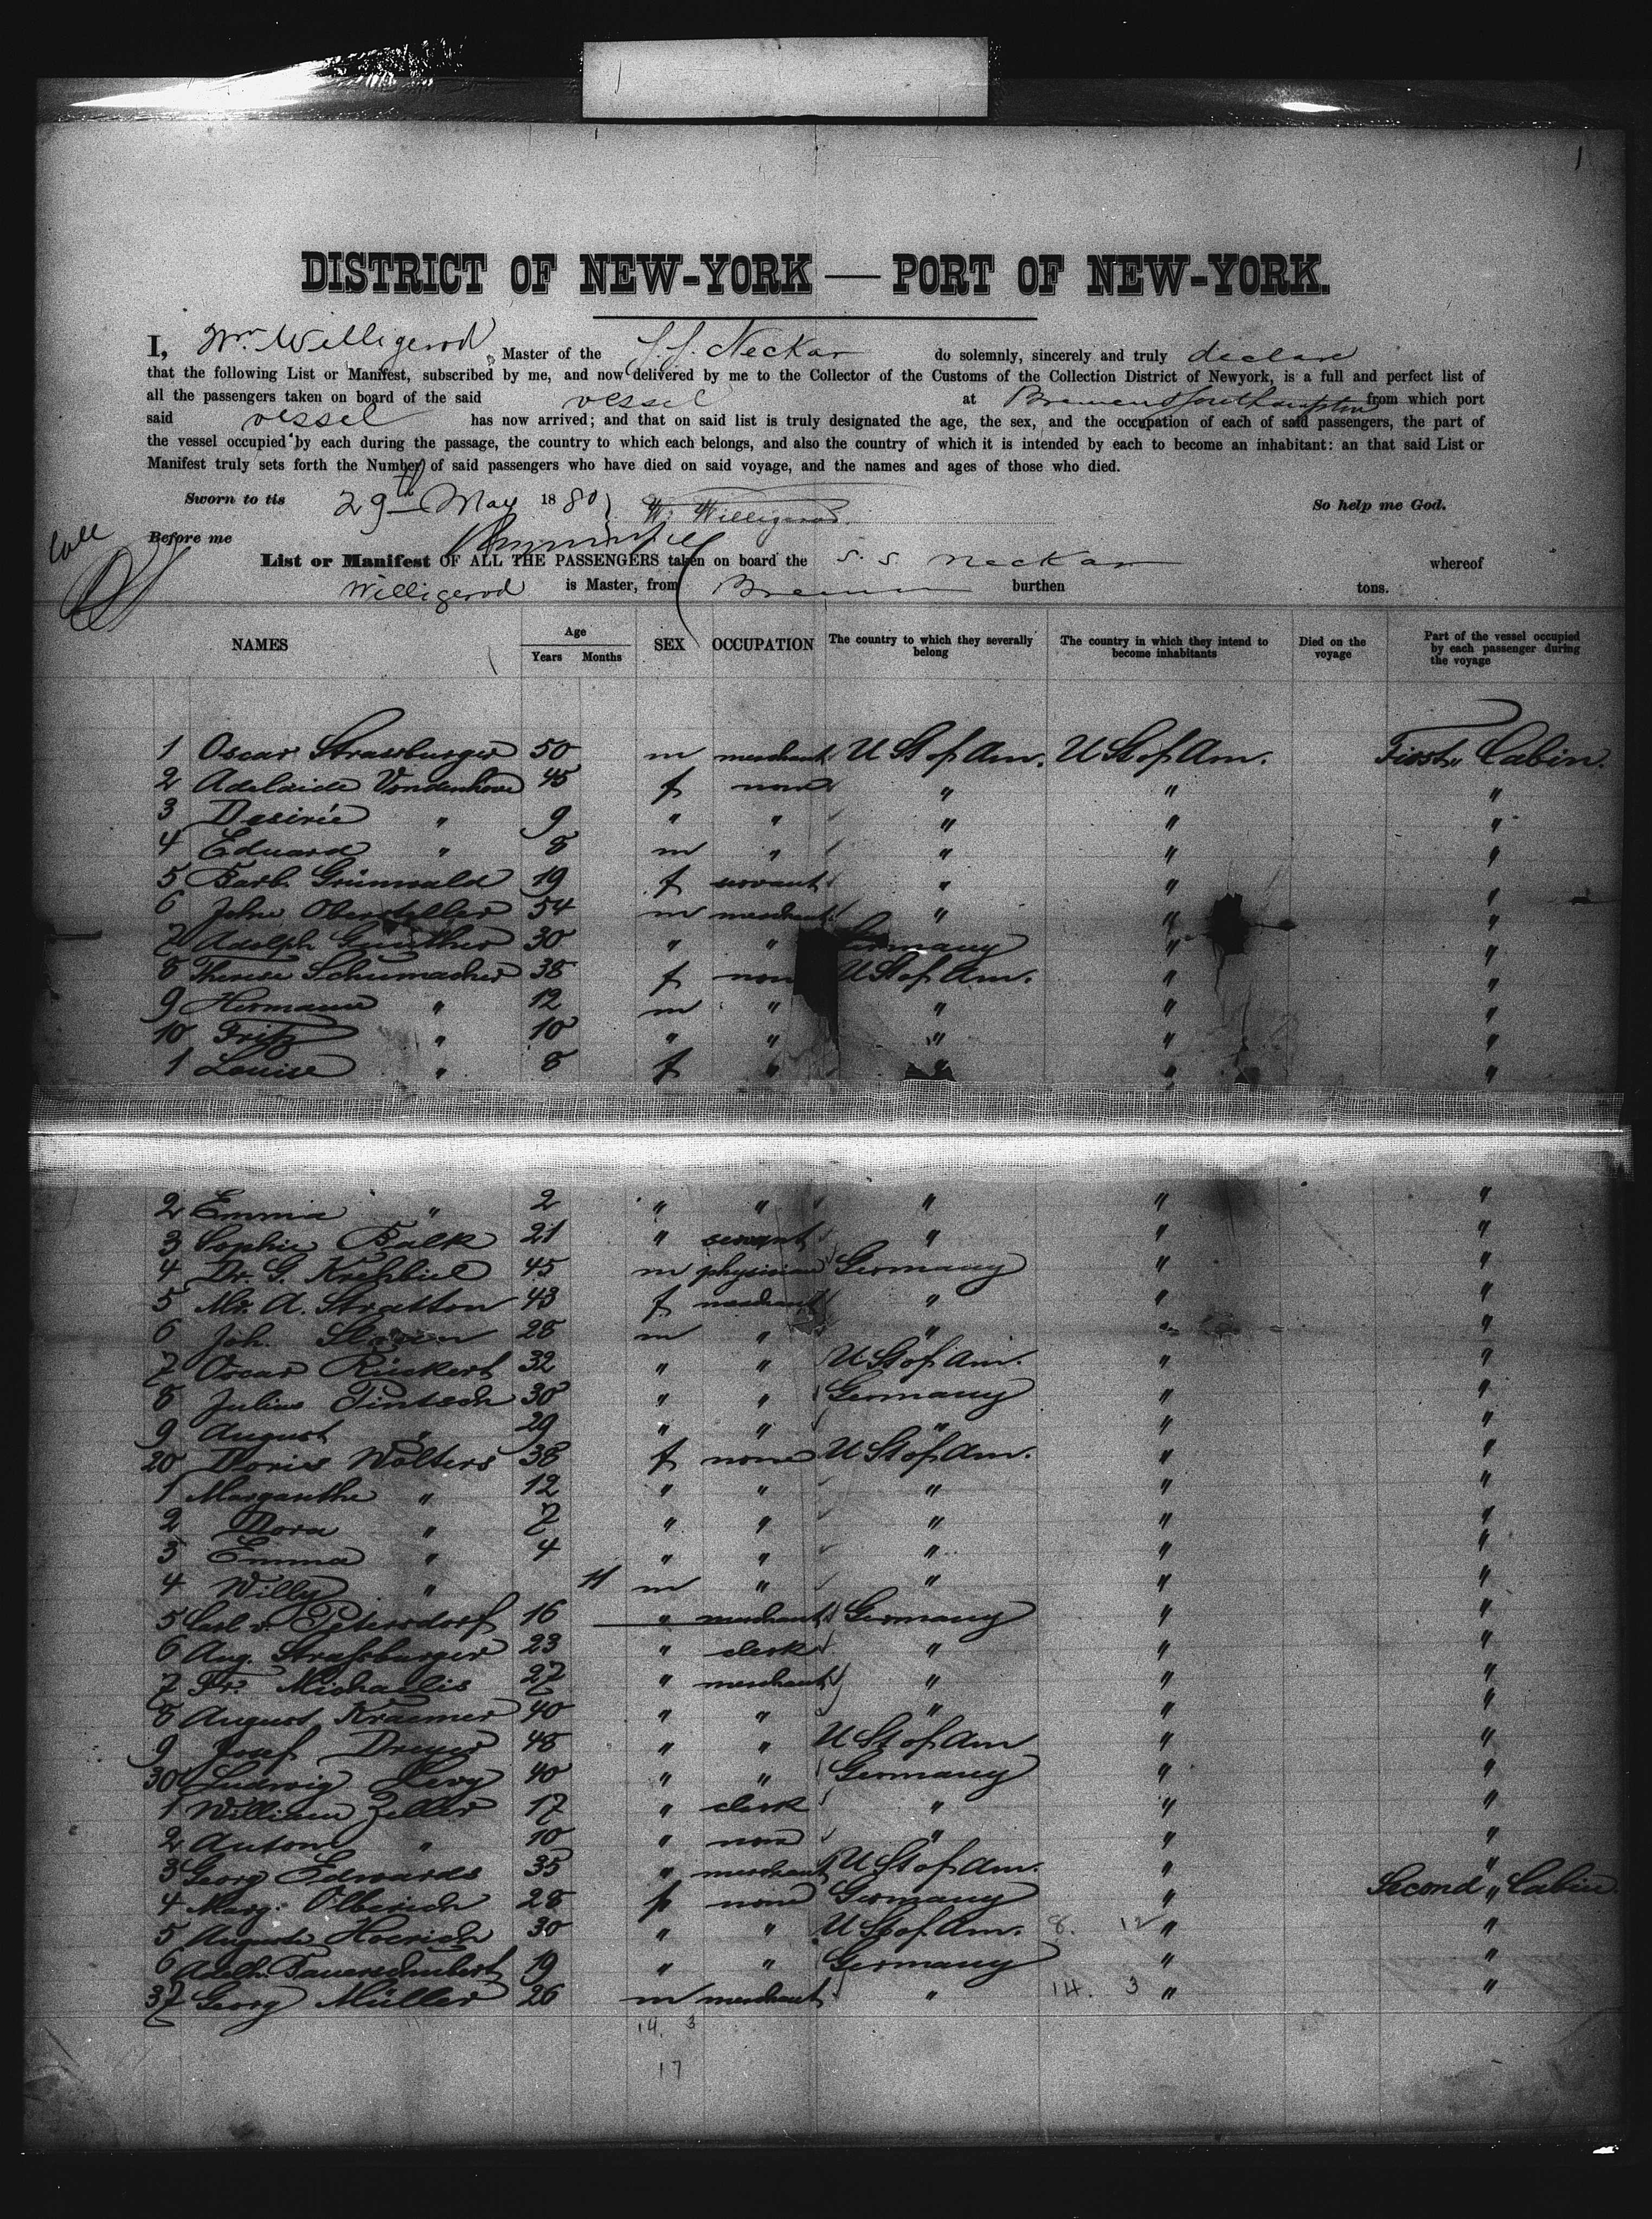 1
DISTRICT OF NEW-YORK — PORT OF NEW-YORK.
I, Wm. Willigerod, Master of the S.S. Neckar do solemnly, sincerely and truly declare
that the following List or Manifest, subscribed by me, and now delivered by me to the Collector of the Customs of the Collection District of Newyork, is a full and perfect list of
all the passengers taken on board of the said vessel at Bremen & Southampton from which port
said vessel has now arrived; and that on said list is truly designated the age, the sex, and the occupation of each of said passengers, the part of
the vessel occupied by each during the passage, the country to which each belongs, and also the country of which it is intended by each to become an inhabitant: an that said List or
Manifest truly sets forth the Number of said passengers who have died on said voyage, and the names and ages of those who died.
Sworn to tis 29th May 1880 W. Willigerod So help me God.
Before me
List or Manifest OF ALL THE PASSENGERS taken on board the S.S. Neckar whereof
Willigerod is Master, from Bremen burthen tons.
NAMES Age Years Months SEX OCCUPATION The country to which they severally belong The country in which they intend to become inhabitants Died on the voyage Part of the vessel occupied by each passenger during the voyage
1 Oscar Strassburger 50 m merchant U St of Am. U St of Am. First Cabin.
2 Adelaide Vondenhove 45 f none " " "
3 Desirée " 9 " " " " "
4 Eduard " 8 m " " " "
5 Barb. Grünwald 19 f servant " " "
6 John Obersteller 54 m merchant " " "
7 Adolph Gunther 30 " " Germany " "
8 Therese Schumacher 38 f none U St of Am. " "
9 Hermann " 12 m " " " "
10 Fritz " 10 " " " " "
1 Louise " 8 f " " " "
2 Emma " 2 " " " " "
3 Sophie Balk 21 " servant " " "
4 Dr. G. Krehbiel 45 m physician Germany " "
5 Mr. A. Stratton 43 f merchant " " "
6 Joh. 28 m " " " "
7 Oscar Rückert 32 " " U St of Am. " "
8 Julius Pintsch 30 " " Germany " "
9 August " 29 " " " " "
20 Doris Wolters 38 f none U St of Am. " "
1 Margarethe " 12 " " " " "
2 Dora " 7 " " " " "
3 Emma " 4 " " " " "
4 Willy " 11 m " " " "
5 Carl v. Petersdorf 16 " merchant Germany " "
6 Aug. Straßburger 23 " clerk " " "
7 Fr. Michaelis 27 " merchant " " "
8 August Kraemer 40 " " " " "
9 Josef Dreyer 48 " " U St of Am " "
30 Ludwig Levy 40 " " Germany " "
1 William Zeller 17 " clerk " " "
2 Anton " 10 " none " " "
3 Georg Edwards 35 " merchant U St of Am. " "
4 Marg. Olberich 28 f none Germany " Second Cabin.
5 Auguste Hoerich 30 " " U St of Am. 8. 12 " "
6 Adelh. Bauerschubert 19 " " Germany " "
37 Georg Müller 26 m merchant " 14. 3 " "
14. 3
17